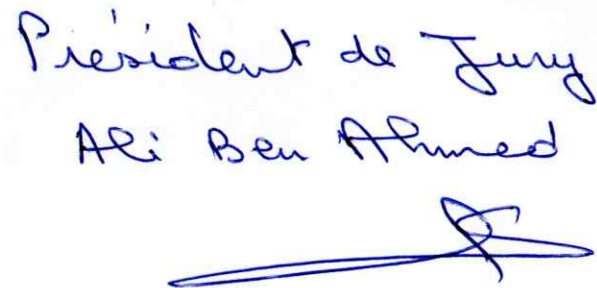 Président de Jury
Ali Ben Ahmed